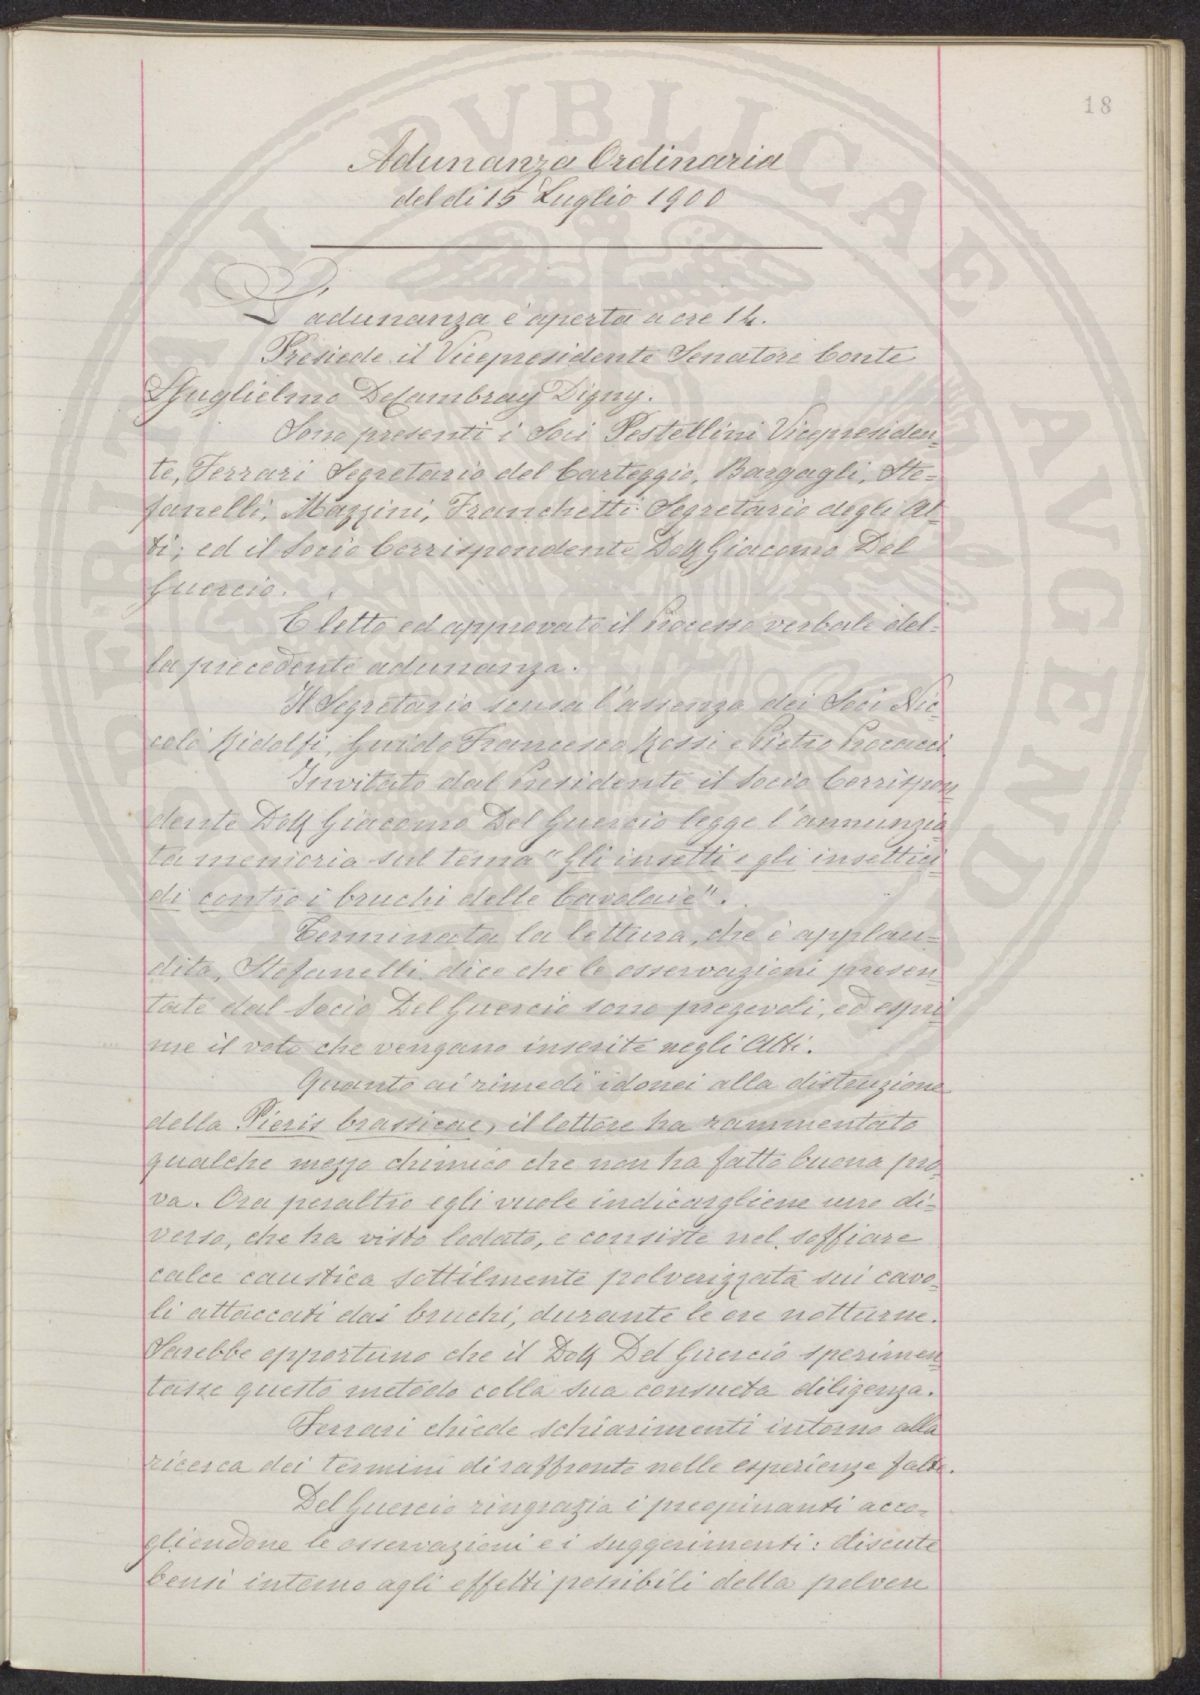 18
Adunanza Ordinaria
del dì 15 Luglio 1900
L'adunanza è aperta a ore 14.
Presiede il Vicepresidente Senatore Conte
Guglielmo DeCambray Digny.
Sono presenti i Soci Pestellini Vicepresiden=
te, Ferrari Segretario del Carteggio, Bargagli, Ste=
fanelli, Mazzini, Franchetti Segretario degli At=
ti; ed il Socio Corrispondente Dott Giacomo Del
Guercio.
È letto ed approvato il Processo verbale del=
la precedente adunanza.
Il Segretario scusa l'assenza dei Soci Nic=
colò Ridolfi, Guido Francesco Rossi e Pietro Procacci
Invitato dal Presidente il Socio Corrispon=
dente Dott Giacomo Del Guercio legge l'annunzia
ta memoria sul tema "Gli insetti e gli insettici
di contro i bruchi delle Cavolaie".
Terminata la lettura, che è applau=
dita, Stefanelli dice che le osservazioni presen
tate dal Socio Del Guercio sono pregevoli, ed espri
me il voto che vengano inserite negli Atti.
Quanto ai rimedi idonei alla distruzione
della Pieris brassicae, il lettore ha rammentato
qualche mezzo chimico che non ha fatto buona pro=
va. Ora peraltro egli vuole indicargliene uno di=
verso, che ha visto lodato, e consiste nel soffiare
calce caustica sottilmente polverizzata sui cavo=
li attaccati dai bruchi, durante le ore notturne.
Sarebbe opportuno che il Dott Del Guercio sperimen
tasse questo metodo colla sua consueta diligenza.
Ferrari chiede schiarimenti intorno alla
ricerca dei termini di raffronto nelle esperienze fatte.
Del Guercio ringrazia i preopinanti acco=
gliendone le osservazioni e i suggerimenti: discute
bensì intorno agli effetti possibili della polvere
PVBLICAE AVGENDAE